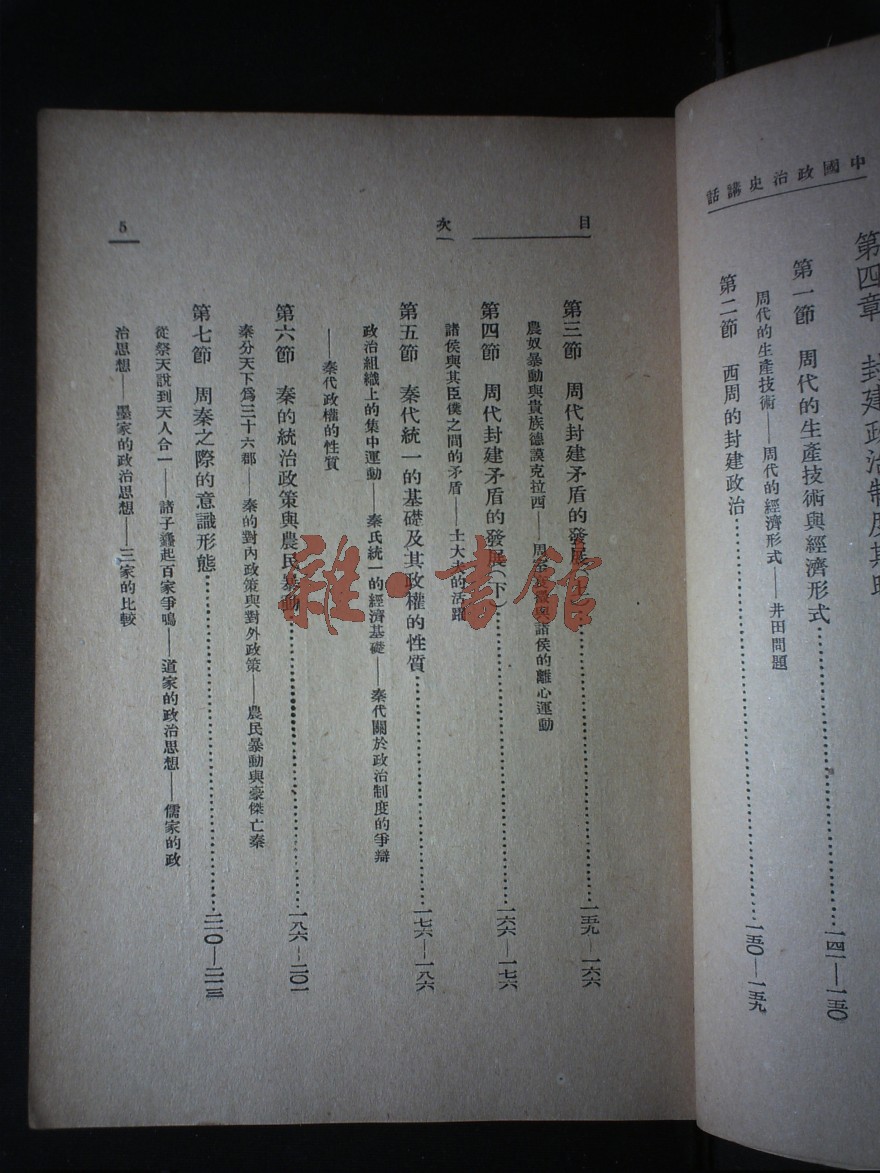 中國政治史講話
第四章 封建政治制度其
第一節 周代的生產技術與經濟形式…………一四一—一五〇
周代的生產技術——周代的經濟形式——井田問題
第二節 西周的封建政治…………一五〇—一五九
目次
第三節 周代封建矛盾的發展(上)…………一五九—一六六
農奴暴動與貴族德謨克拉西——周室諸侯的離心運動
第四節 周代封建矛盾的發展(下)…………一六六—一七六
諸侯與其臣僕之間的矛盾——士大夫的活躍
第五節 秦代統一的基礎及其政權的性質…………一七六—一八六
政治組織上的集中運動——秦氏統一的經濟基礎——秦代關於政治制度的爭辯
——秦代政權的性質
第六節 秦的統治政策與農民暴動…………一八六—二〇一
秦分天下爲三十六郡——秦的對內政策與對外政策——農民暴動與豪傑亡秦
第七節 周秦之際的意識形態…………二一〇—二一三
從祭天說到天人合一——諸子蠭起百家爭鳴——道家的政治思想——儒家的政
治思想——墨家的政治思想——三家的比較
5
雜·書館